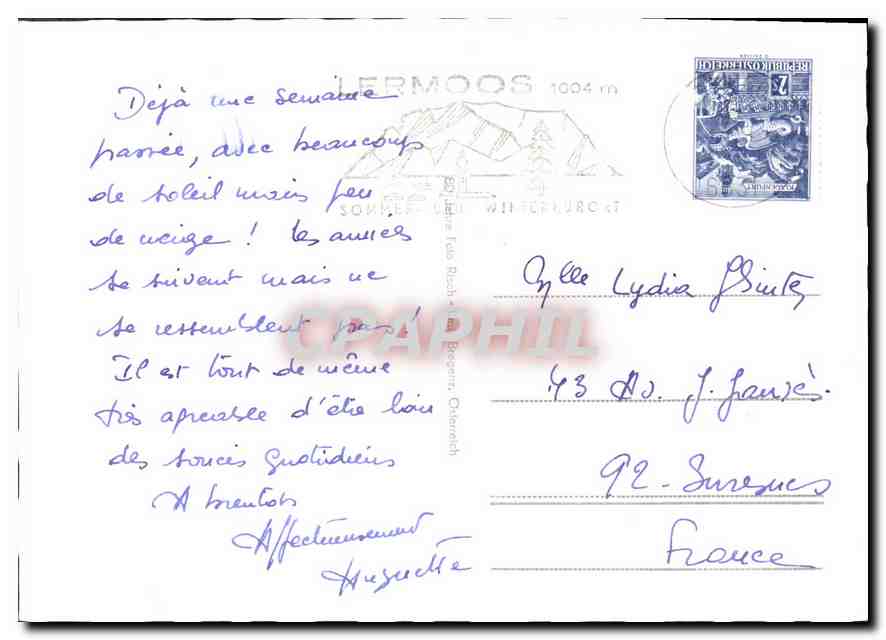 Déjà une semaine
passée, avec beaucoup
de soleil mais peu
de neige ! les années
se suivent mais ne
se ressemblent pas !
Il est tout de même
très agréable d'être loin
des soucis quotidiens
A bientôt
Affectueusement
Huguette
LERMOOS 1004 m
SOMMER- UND WINTERKURORT
REPUBLIK ÖSTERREICH
2 S
KLAGENFURT
Foto Risch-Lau, Bregenz, Österreich
Mlle Lydia
43 Av. J. Jaurès.
92 - Suresnes
France
CPAPHIL